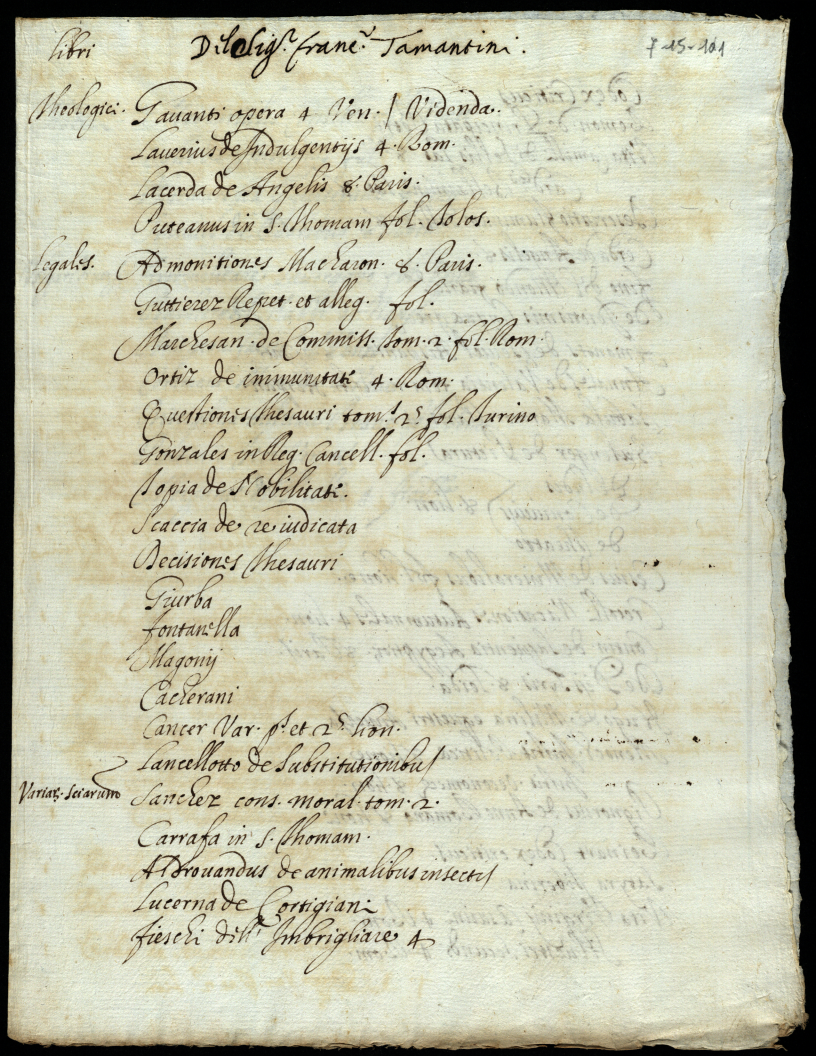 libri Del Sig.r Franc.o Tamantini.
7-15-101
Theologici. Gavanti opera 4 Ven. / Videnda.
Laverius de Indulgentijs 4. Rom.
Lacerda de Angelis 8. Paris.
Puteanus in S. Thomam fol. Tolos.
Legales. Admonitiones Macharon. 8. Paris.
Guttierez Repet. et alleg. fol.
Marchesan. de Commiss. tom. 2. fol. Rom.
Ortiz de inimunitate 4. Rom.
Questiones Thesauri tom.s 2.s fol. Turino
Gonzales in Reg. Cancell. fol.
Topia de Nobilitate.
Scaccia de re iudicata
Decisiones Thesauri
Giurba
Fontanella
Magonij
Cacherani
Cancer Var. p.s et 2.s Lion.
Lancellotto de Substitutionibus
Variar. Sciarum Sanchez cons. moral. tom. 2.
Carrafa in S. Thomam.
Aldrovandus de animalibus insectis
Lucerna de Cortigiani
Fieschi dell' Imbrigliare 4